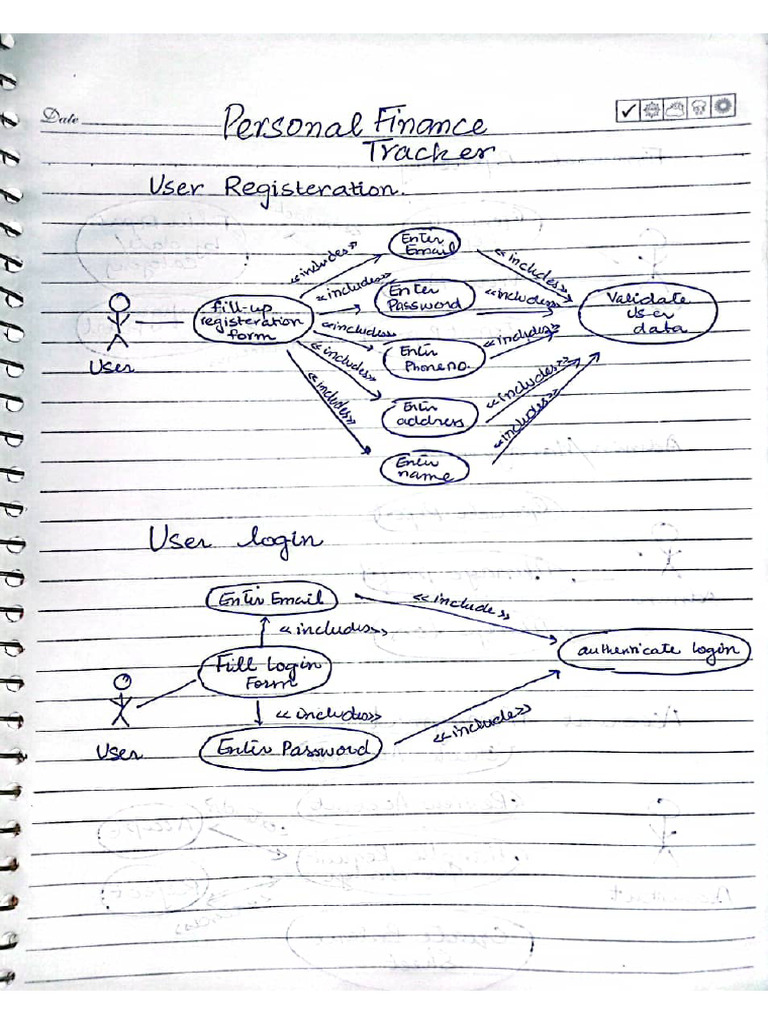 Date
Personal Finance
Tracker
User Registeration.
Enter
Email
<<includes>>
<<includes>>
Enter
Password
<<includes>>
<<includes>>
fill-up
registeration
form
Validate
user
data
User
<<includes>>
Enter
Phoneno.
<<includes>>
<<includes>>
Enter
address
<<includes>>
<<includes>>
Enter
name
<<includes>>
User login
Enter Email
<<includes>>
<<includes>>
Fill Login
Form
authenticate login
User
<<includes>>
Enter Password
<<includes>>